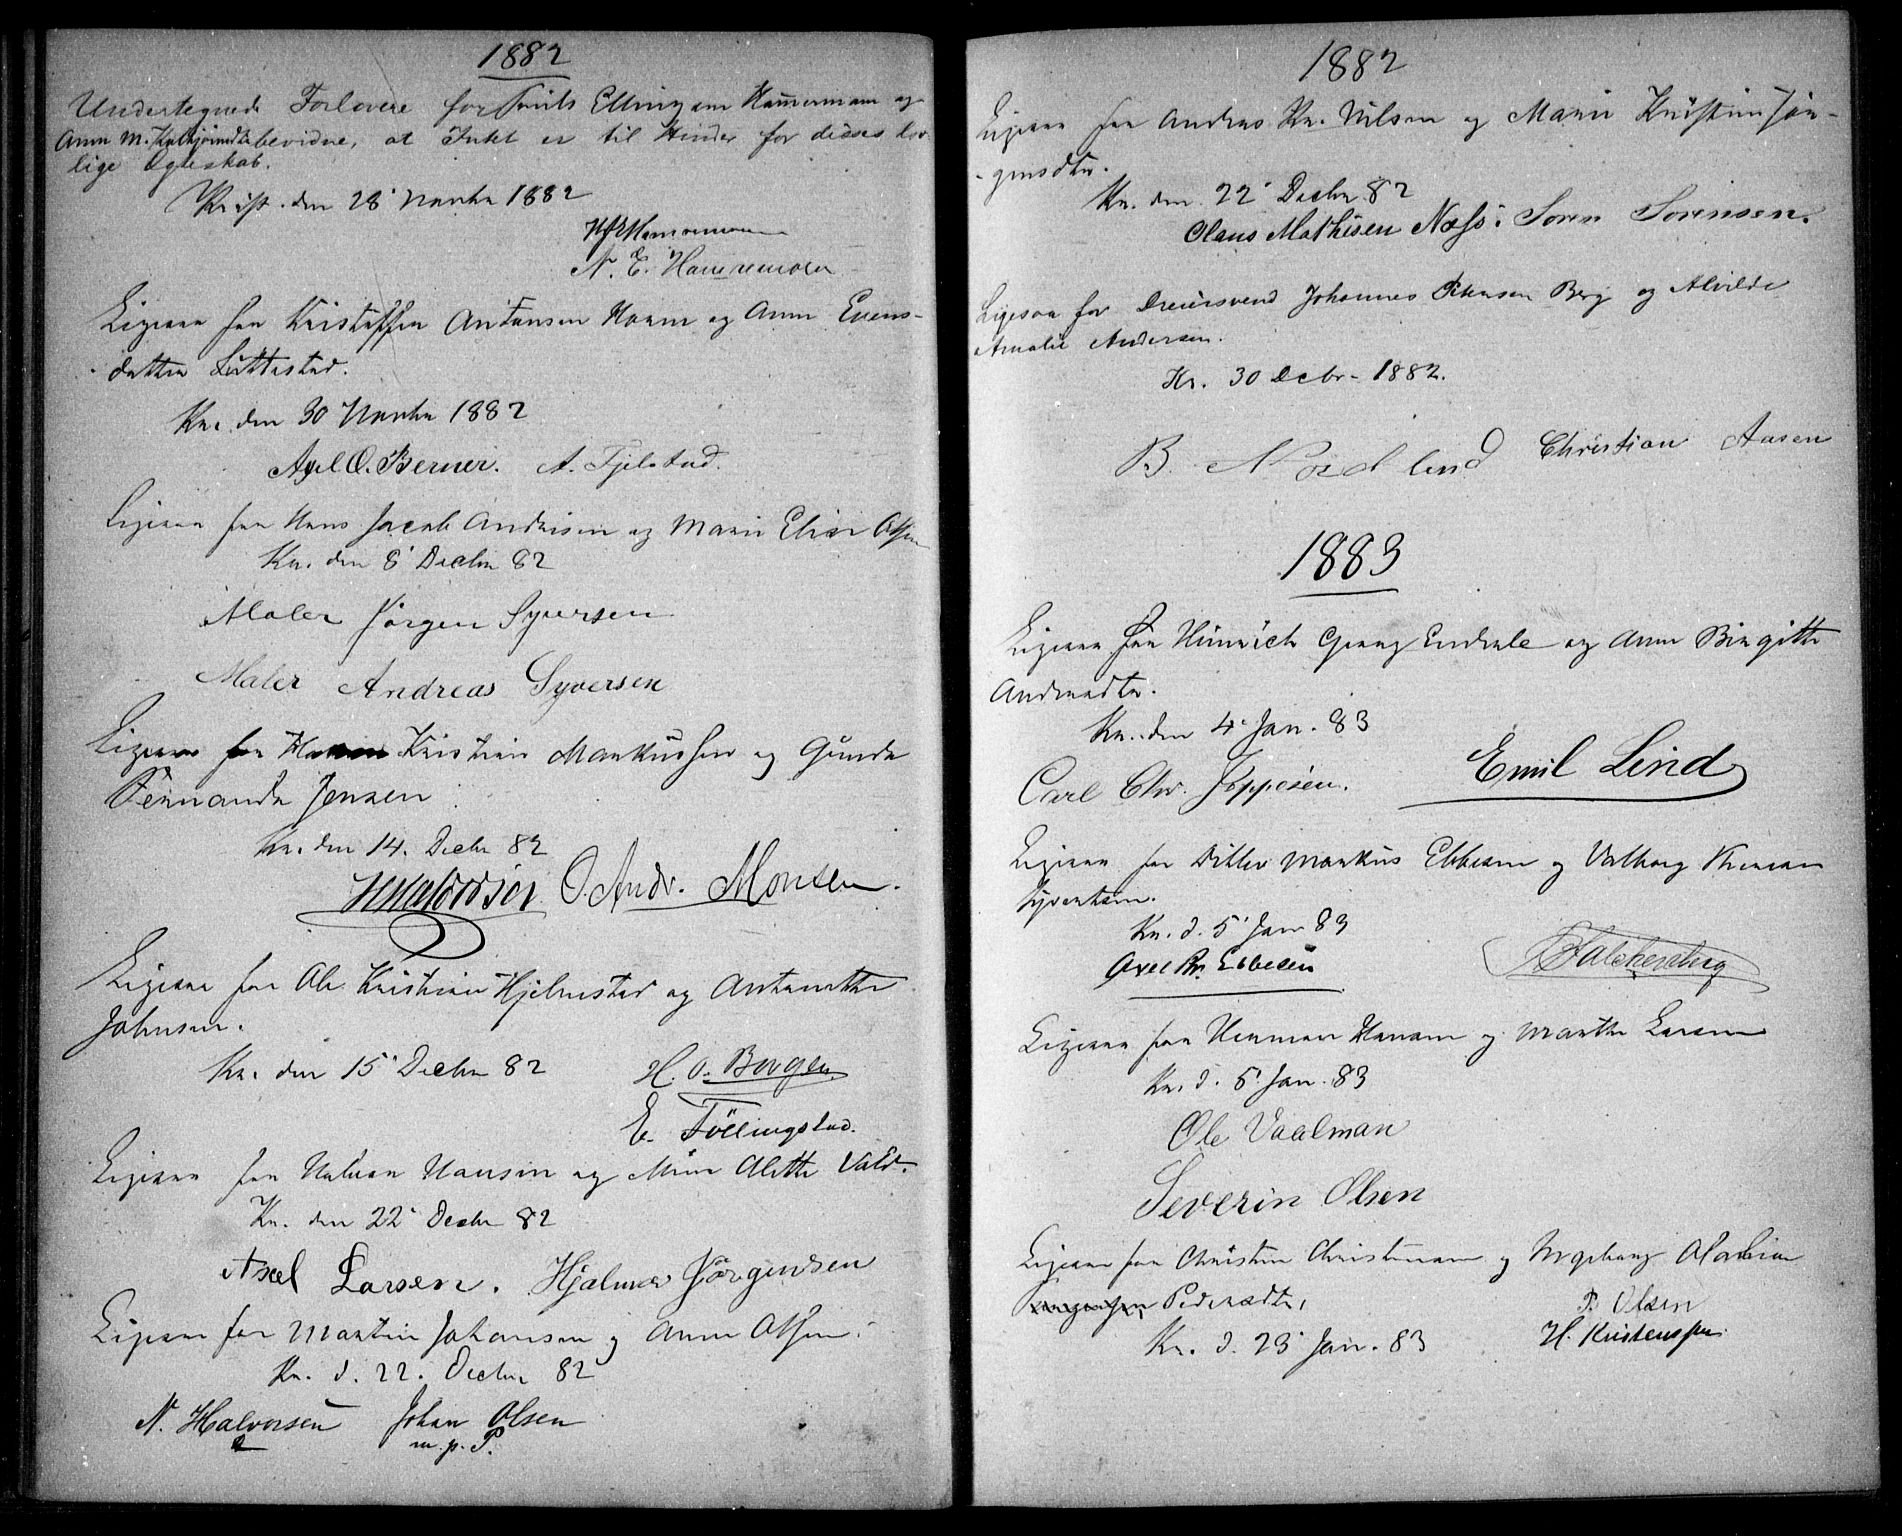 1882
Undertegnede Forlovere for Ellingsen Hammermoen og
Anna M. bevidne, at Intet er til Hinder for disses lov-
lige Egteskab.
Krist. den 28 Novbr 1882
N. E. Hammermoen
Ligesaa for Kristoffer Antonsen Hoam og Anna Evens-
datter Lüttestad.
Kr. den 30 Novbr 1882
Axel O. Berner. A. Fjelstad.
Ligesaa for Hans Jacob Andersen og Marie Elise Olsen
Kr. den 8' Decbr 82
Maler Jörgen Syversen
Maler Andreas Syversen
Ligesaa for Kristian Markussen og Gunda
Fernanda Jensen
Kr. den 14. Decbr 82
O. Andr. Monsen.
Ligesaa for Ole Kristian Hjelmstad og Antonette
Johnsen.
Kr. den 15' Decbr 82
H. O. Borgen
E. Föllingstad.
Ligesaa for Halvor Hansen og Mina Alette Vald.
Kr. den 22' Decbr 82
Axel Larsen. Hjalmar Jörgensen
Ligesaa for Martin Johansen og Anna Olsen.
Kr. d. 22. Decbr 82
N. Halvorsen Johan Olsen
m. p. P.
1882
Ligesaa for Andreas Kr. Nilsen og Marie Kristine Jör-
gensdtr.
Kr. den 22' Decbr 82
Olaus Mathisen Næss. Soren Sorensen.
Ligesaa for Dreiersvend Johannes Petersen Berg og Alvilde
Amalie Andersen.
Kr. 30 Decbr. 1882.
B. Nordlund Christian Aasen
1883
Ligesaa for Heinrich Georg Enderle og Anna Birgitte
Andersdtr.
Kr. den 4' Jan. 83
Carl Chr. Jeppesen. Emil Lind
Ligesaa for Ditlev Markus Ebbesen og Valborg Theresen
Syvertsen.
Kr. d. 5' Jan 83
Axel Br. Ebbesen Falckenberg
Ligesaa for Herman Hansen og Marthe Larsen
Kr. d. 5' Jan. 83
Ole Vaalman
Severin Olsen
Ligesaa for Christen Christensen og Ingeborg Olavia
Pedersdtr,
P. Olsen
H. Kristensen
Kr. d. 23' Jan. 83
N. Halvorsen